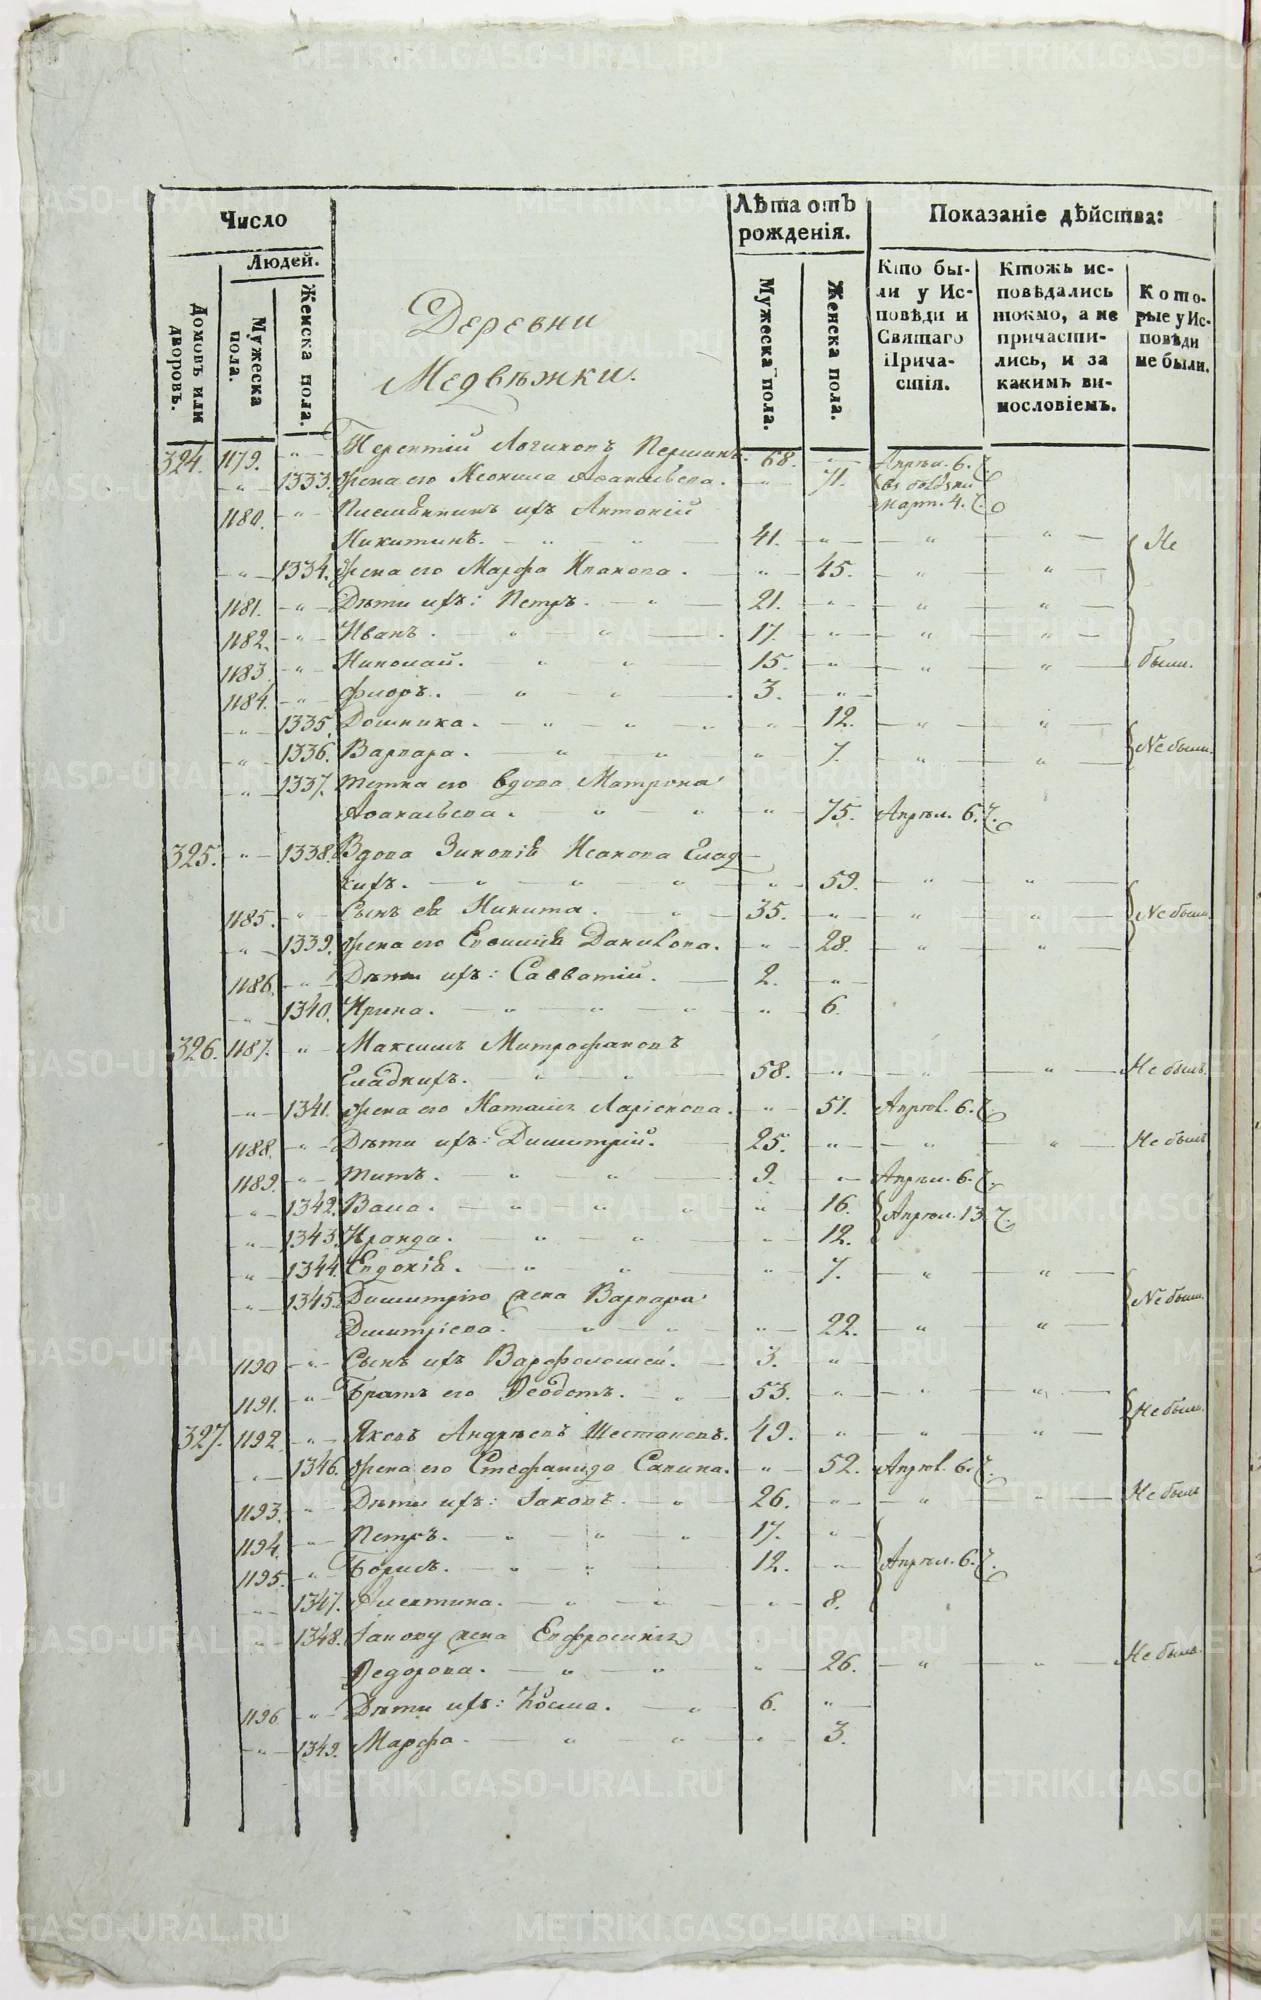 Число
Людей.
Домовъ или дворовъ.
Мужеска пола.
Женска пола.
Деревни
Медвѣжки.
Лѣта отъ рожденія.
Мужеска пола.
Женска пола.
Показаніе дѣйства:
Кто бы-
ли у Ис-
повѣди и
Святаго
Прича-
стія.
Ктожъ ис-
повѣдались
токмо, а не
причасти-
лись, и за
какимъ ви-
нословіемъ.
Кото-
рые у Ис-
повѣди
не были.
324. 1179. Терентій Логиновъ Першинъ. 68. Апрѣл. 6.
1333. Жена его Неонила Аѳанасьева. 71.
Март. 4.
1180. Племянникъ ихъ Антоній
Никитинъ. 41. Не
1334. Жена его Марфа Иванова. 45.
1181. Дѣти ихъ: Петръ. 21.
1182. Иванъ. 17.
1183. Николай. 15. были.
1184. Фиоръ. 3.
1335. Домника. 12.
1336. Варвара. 7. Не были.
1337. Тетка его вдова Матрона
Аѳанасьева. 75. Апрѣл. 6.
325. 1338. Вдова Зиновія Исакова Глад
кихъ. 59.
1185. Сынъ ея Никита. 35. Не были.
1339. Жена его Евѳимія Данилова. 28.
1186. Дѣти ихъ: Савватій. 2.
1340. Ирина. 6.
326. 1187. Максимъ Митрофановъ
Гладкихъ. 58. Не былъ.
1341. Жена его Наталія Ларіонова. 51. Апрѣл. 6.
1188. Дѣти ихъ: Димитрій. 25. Не былъ
1189. Титъ. 9. Апрѣл. 6.
1342. Васа. 16. Апрѣл. 13.
1343. Ираида. 12.
1344. Евдокія. 7.
1345. Димитрію жена Варвара Не были.
Дмитріева. 22.
1190 Сынъ ихъ Варфоломей. 3.
1191. Братъ его Ѳеодотъ. 53. Не были.
327. 1192. Яковъ Андреевъ Шестаковъ. 49.
1346. Жена его Стефанида Савина. 52. Апрѣл. 6.
1193. Дѣти ихъ: Іаковъ. 26. Не былъ
1194. Петръ. 17.
1195. Борисъ. 12. Апрѣл. 6.
1347. 8.
1348. Іакову жена Евфросинія
Ѳедорова. 26. Не была.
1196. Дѣти ихъ: Косма. 6.
1349. Марфа. 3.